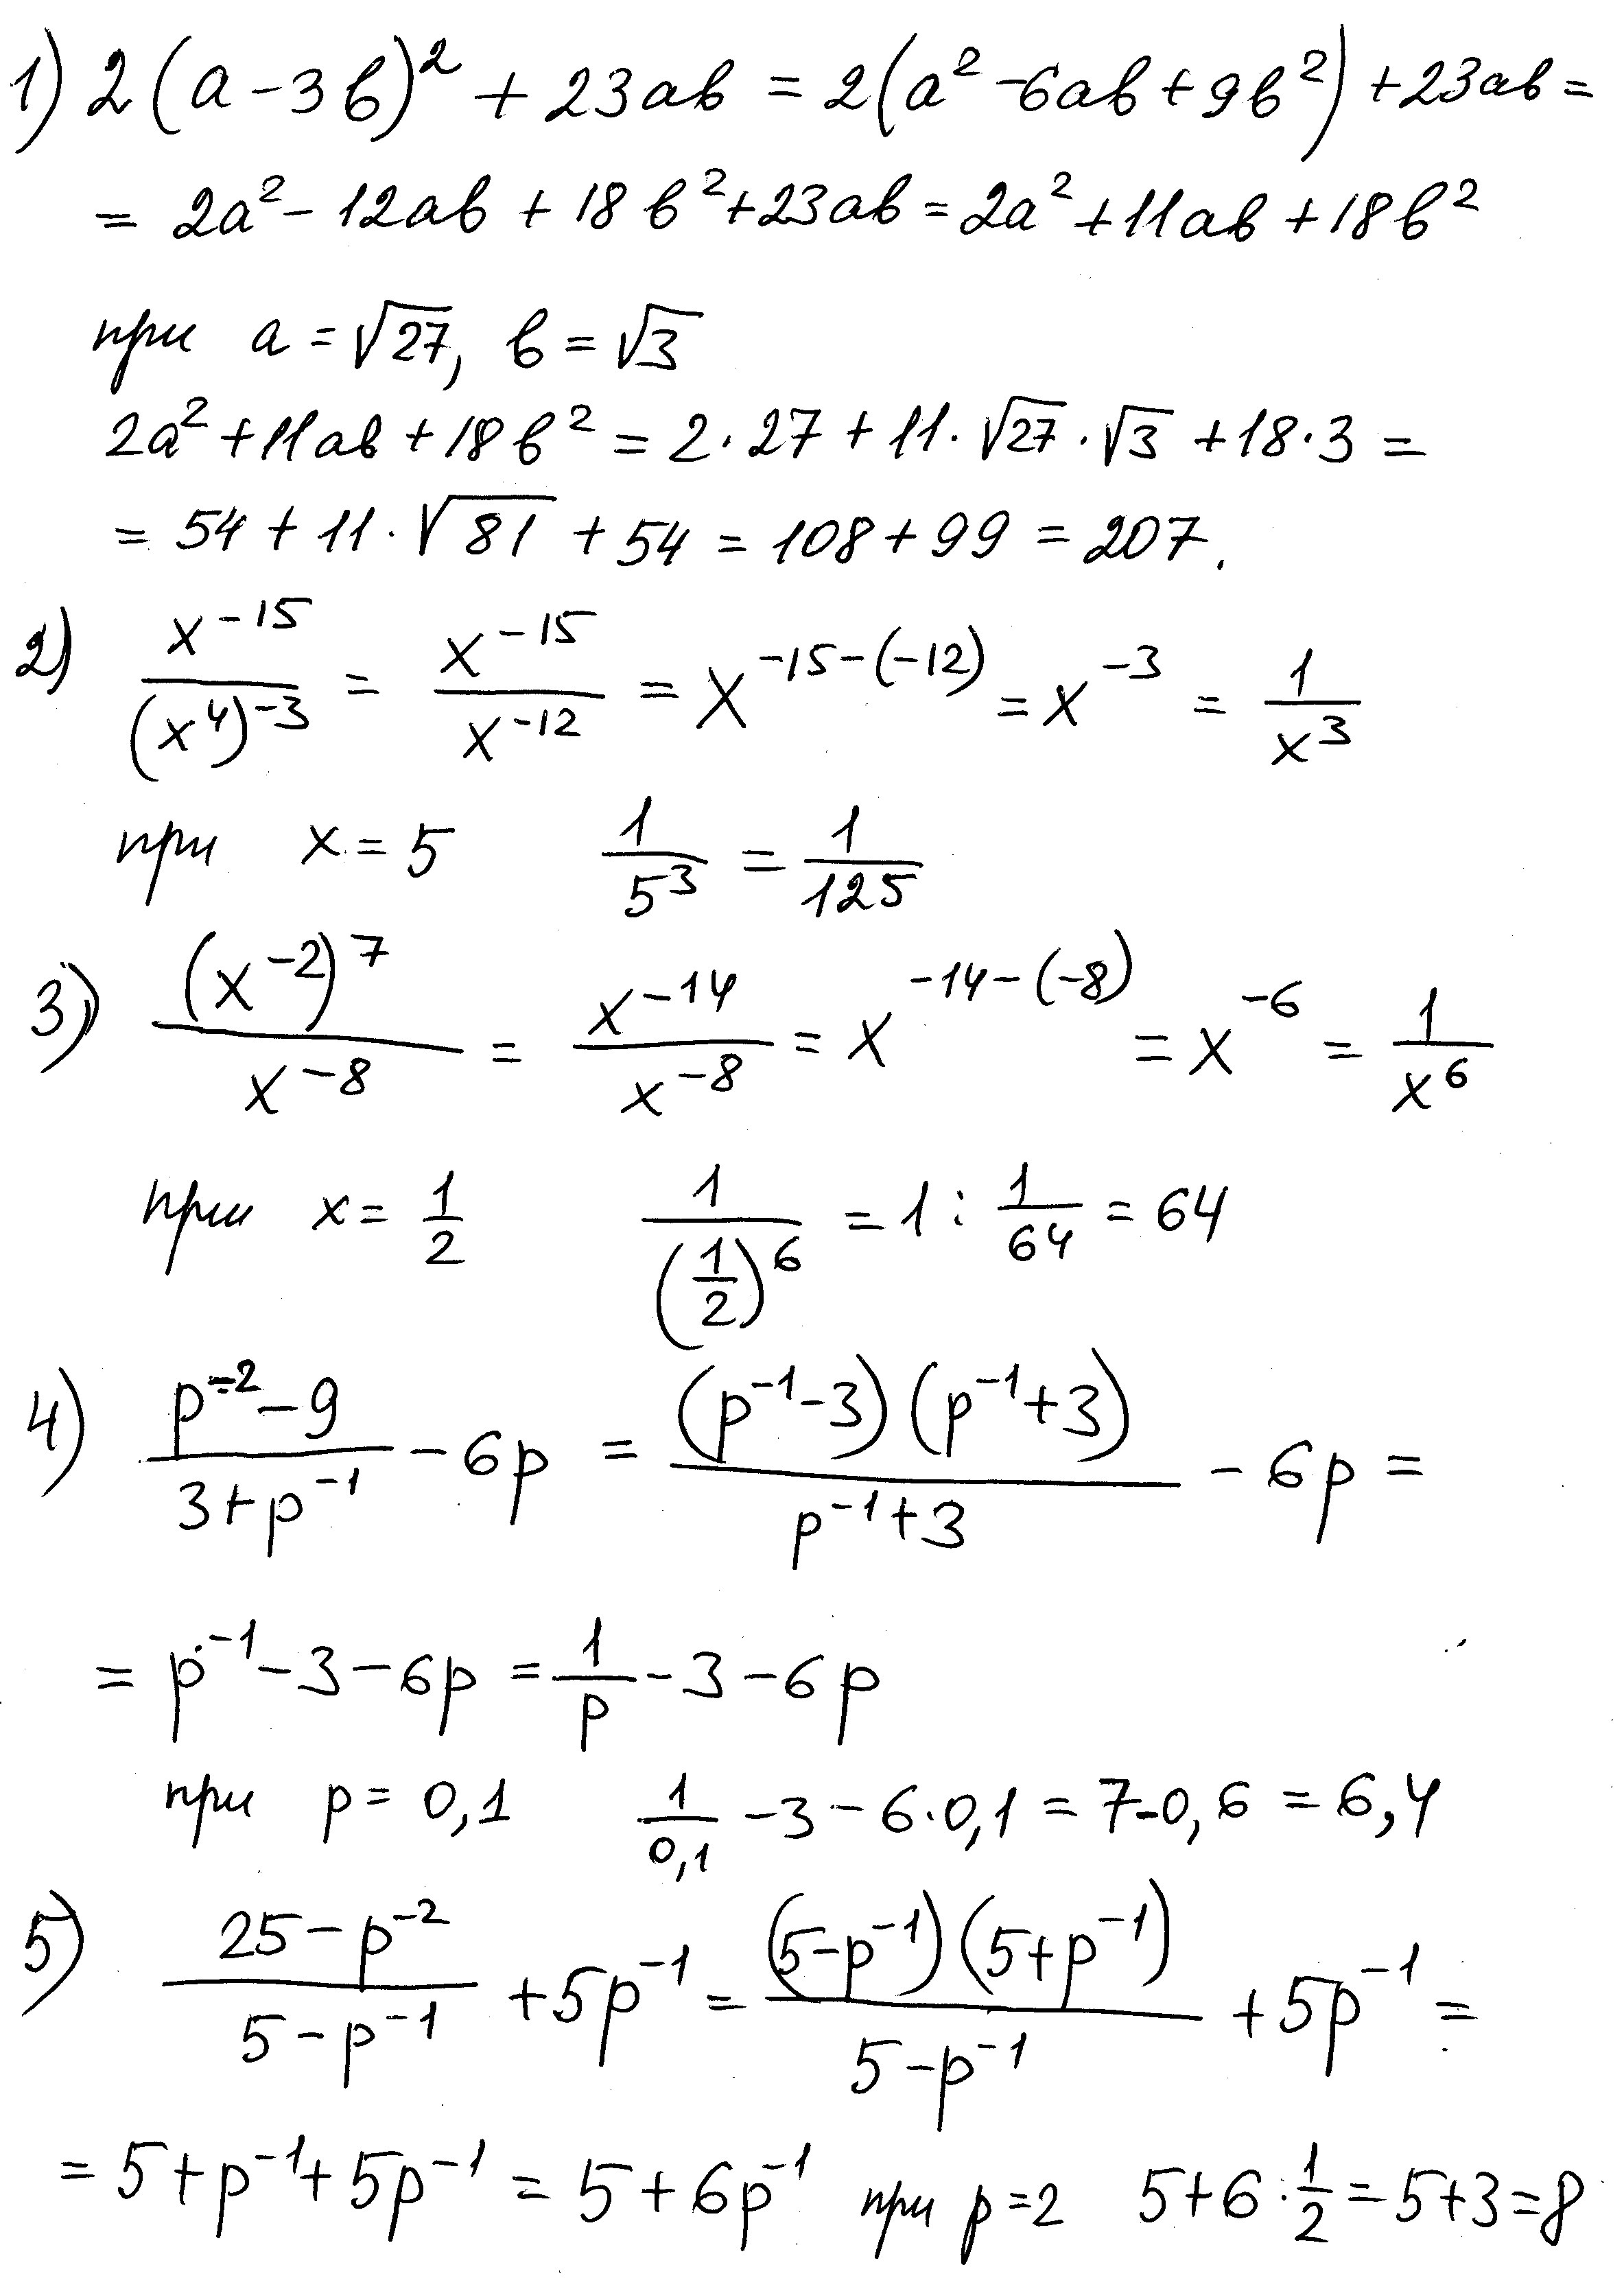 1) 2(a-3b)² + 23ab = 2(a²-6ab+9b²)+23ab=
= 2a²-12ab+18b²+23ab=2a²+11ab+18b²
при a=√27, b=√3
2a²+11ab+18b²=2·27+11·√27·√3+18·3=
= 54+11·√81+54=108+99=207.
2) x⁻¹⁵/(x⁴)⁻³ = x⁻¹⁵/x⁻¹² = x^(-15-(-12)) = x⁻³ = 1/x³
при x=5 1/5³ = 1/125
3) (x⁻²)⁷/x⁻⁸ = x⁻¹⁴/x⁻⁸ = x^(-14-(-8)) = x⁻⁶ = 1/x⁶
при x=1/2 1/(1/2)⁶ = 1:1/64 = 64
4) (p⁻²-9)/(3+p⁻¹) - 6p = (p⁻¹-3)(p⁻¹+3)/(p⁻¹+3) - 6p =
= p⁻¹-3-6p = 1/p -3-6p
при p=0,1 1/0,1 -3-6·0,1=7-0,6=6,4
5) (25-p⁻²)/(5-p⁻¹) +5p⁻¹ = (5-p⁻¹)(5+p⁻¹)/(5-p⁻¹) +5p⁻¹ =
= 5+p⁻¹+5p⁻¹ = 5+6p⁻¹ при p=2 5+6·1/2=5+3=8